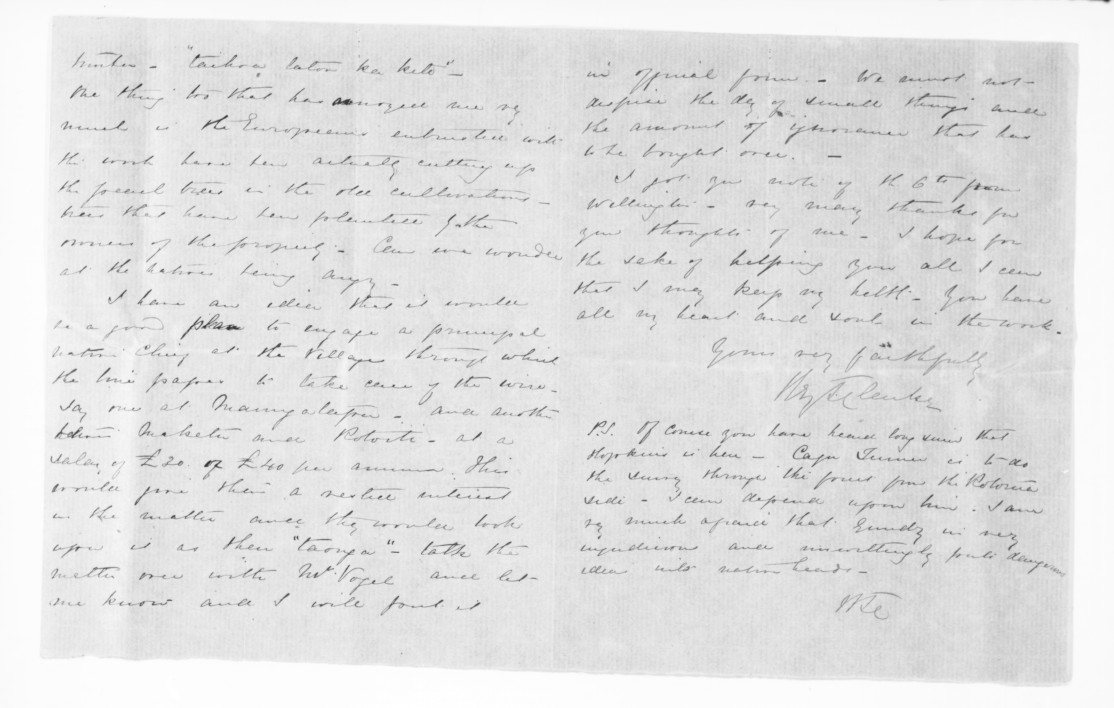 timber - "taihoa, laton ka kite" -
One thing too that has annoyed me very
much is the Europeans entrusted with
the work have been actually cutting up
the peach trees in the old cultivations -
trees that have been planted by the
owners of the property - Can we wonder
at the natives being angry -
I have an idea that it would
be a good plan to engage a principal
native Chief at the Village through which
the line passes to take care of the wire -
say one at Maungatapu - and another
between Maketu and Rotoiti - at a
salary of £20 or £40 per annum. This
would give them a vested interest
in the matter and they would look
upon it as their "taonga" - talk the
matter over with Mr. Vogel and let
me know and I will put it
in official form. - We must not
despise the day of small things and
the amount of ignorance that has
to be bought over. -
I got your note of the 6th from
Wellington - very many thanks for
your thoughts of me - I hope for
the sake of helping you all I can
that I may keep my health - You have
all my heart and soul in the work.
Yours very faithfully
H. T. Clarke
P.S. Of course you have heard long since that
Hopkins is here - Capn Turner is to do
the survey through the forest from the Rotorua
side - I can depend upon him. I am
very much afraid that Gundry is very
injudicious and unwittingly puts dangerous
ideas into native heads -
HTC